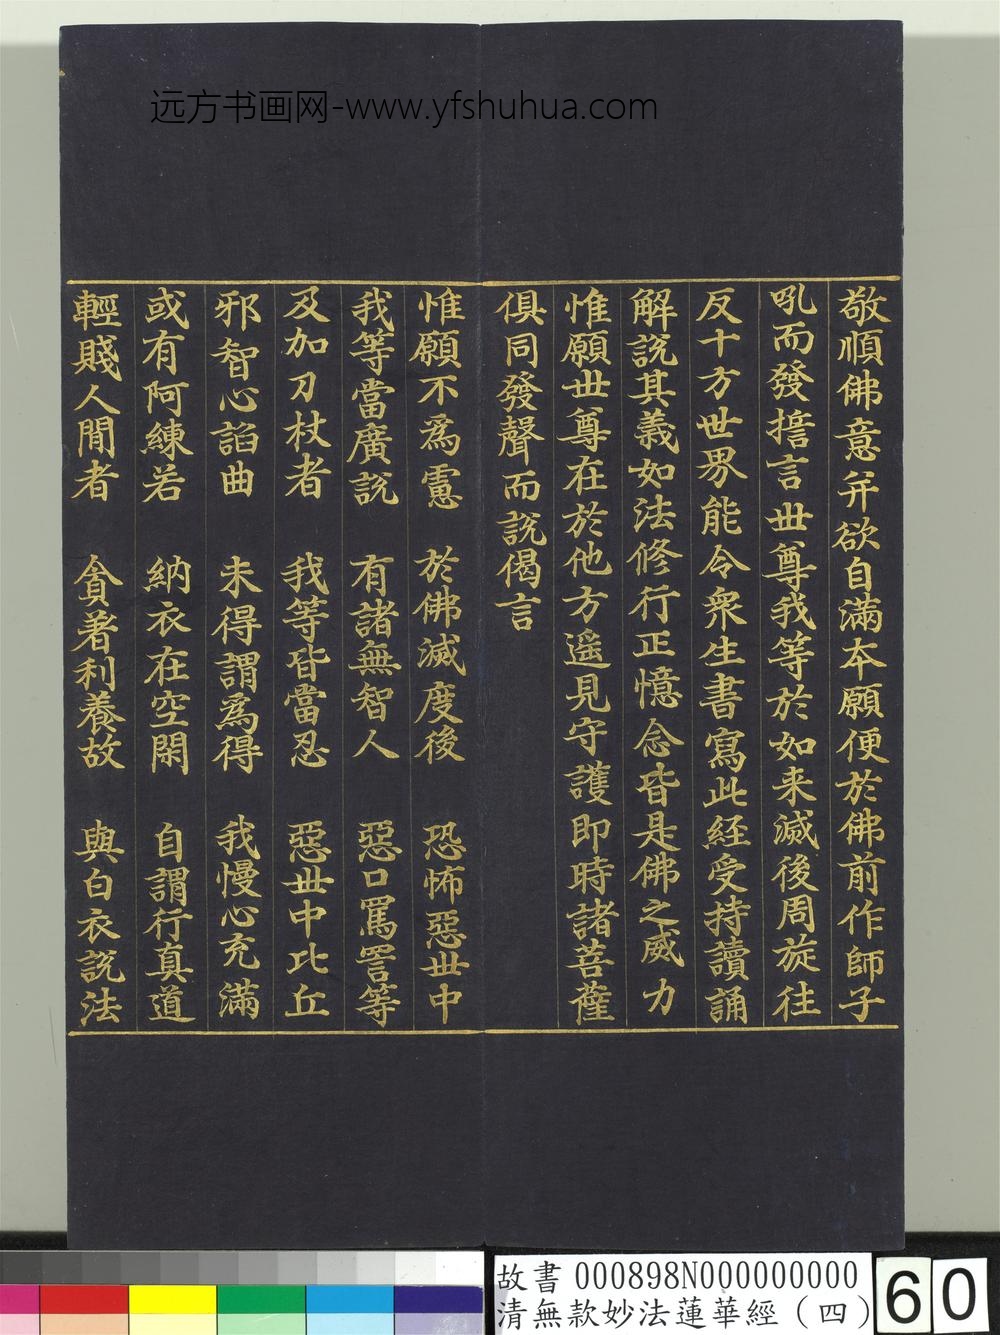 远方书画网-www.yfshuhua.com
敬順佛意并欲自滿本願便於佛前作師子
吼而發誓言世尊我等於如来滅後周旋往
反十方世界能令衆生書寫此経受持讀誦
解說其義如法修行正憶念皆是佛之威力
惟願世尊在於他方遥見守護即時諸菩薩
俱同發聲而說偈言
惟願不為慮 於佛滅度後 恐怖惡世中
我等當廣說 有諸無智人 惡口罵詈等
及加刀杖者 我等皆當忍 惡世中比丘
邪智心謟曲 未得謂為得 我慢心充滿
或有阿練若 納衣在空閑 自謂行真道
輕賤人間者 貪著利養故 與白衣說法
故書 000898N000000000
清無款妙法蓮華經（四）
60